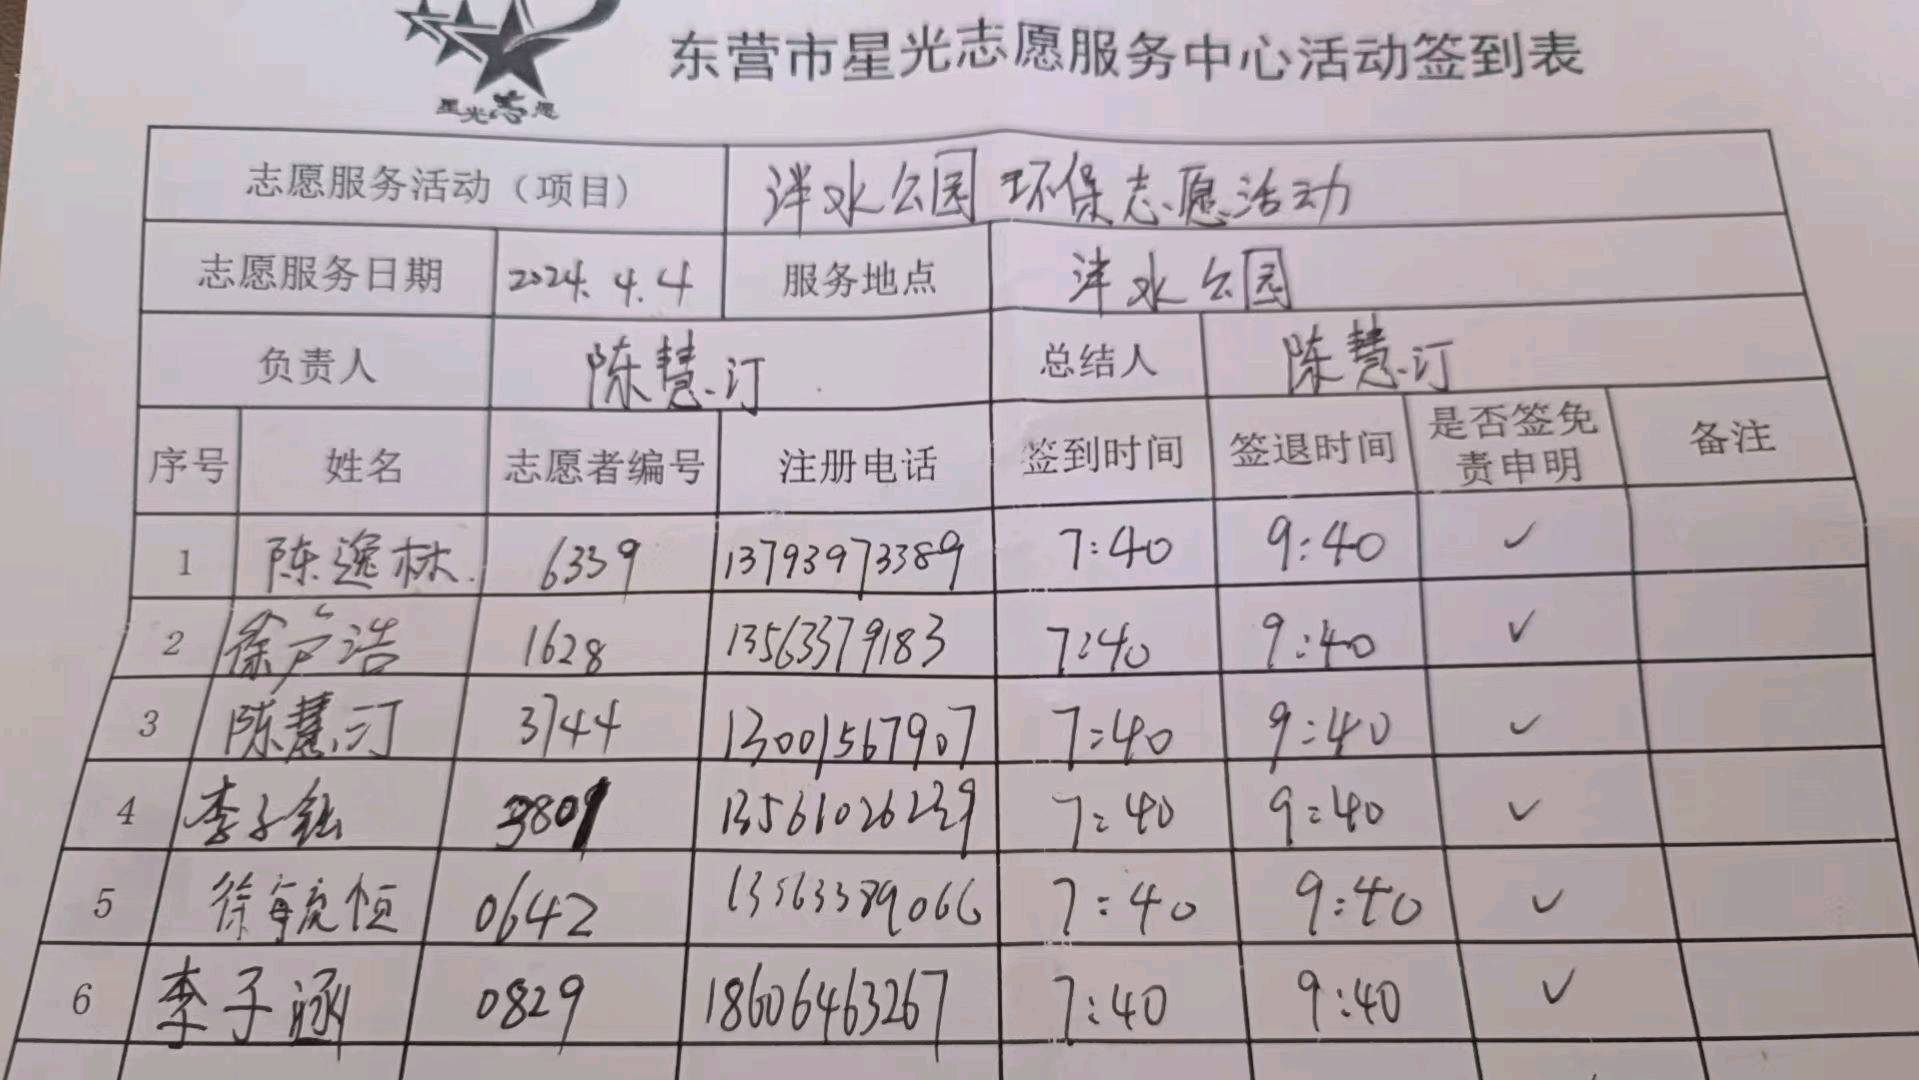 星光志愿
东营市星光志愿服务中心活动签到表
志愿服务活动（项目） 泮水公园 环保志愿活动
志愿服务日期 2024.4.4 服务地点 泮水公园
负责人 陈慧汀 总结人 陈慧汀
序号 姓名 志愿者编号 注册电话 签到时间 签退时间 是否签免责申明 备注
1 陈逸林 6339 13793973389 7:40 9:40 ✓
2 徐户浩 1628 13563379183 7:40 9:40 ✓
3 陈慧汀 3744 13001567907 7:40 9:40 ✓
4 李子钰 3809 13561026239 7:40 9:40 ✓
5 徐 恒 0642 13563389066 7:40 9:40 ✓
6 李子涵 0829 18606463267 7:40 9:40 ✓